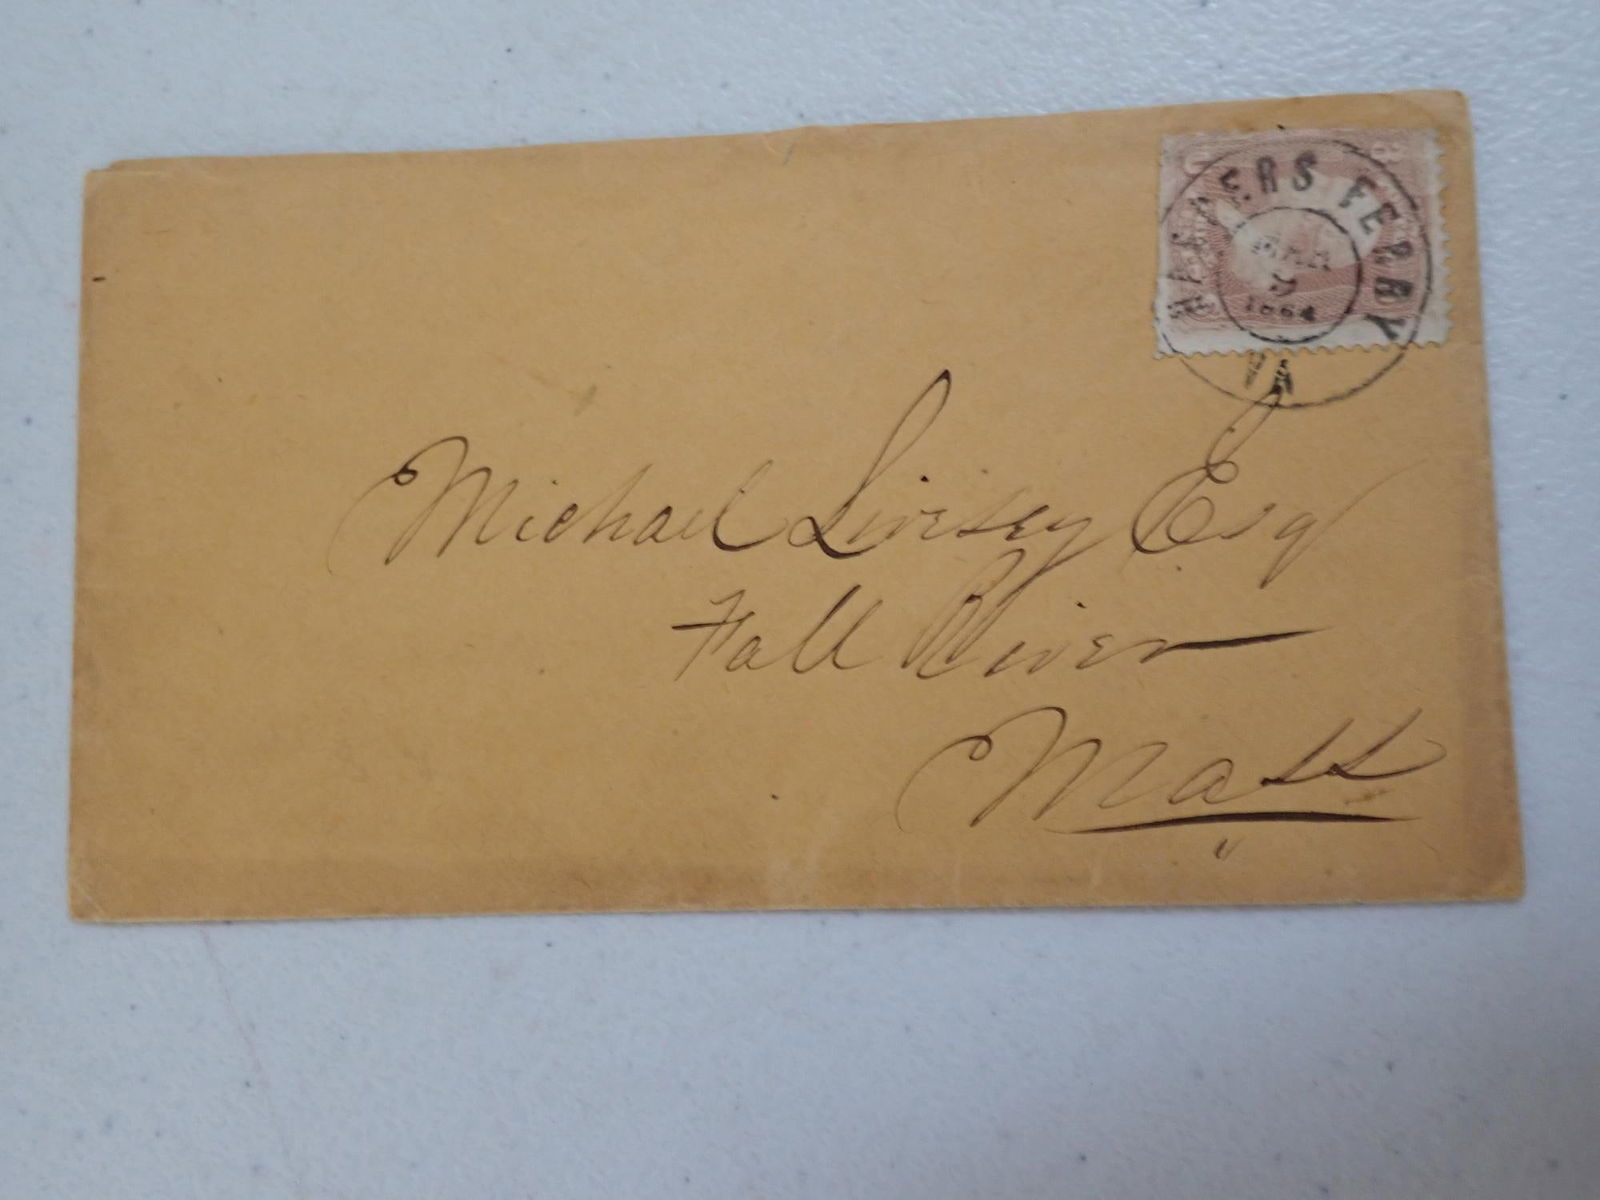 HARPERS FERRY
MAR
1864
VA
Michael Livesey Esq
Fall River
Mass